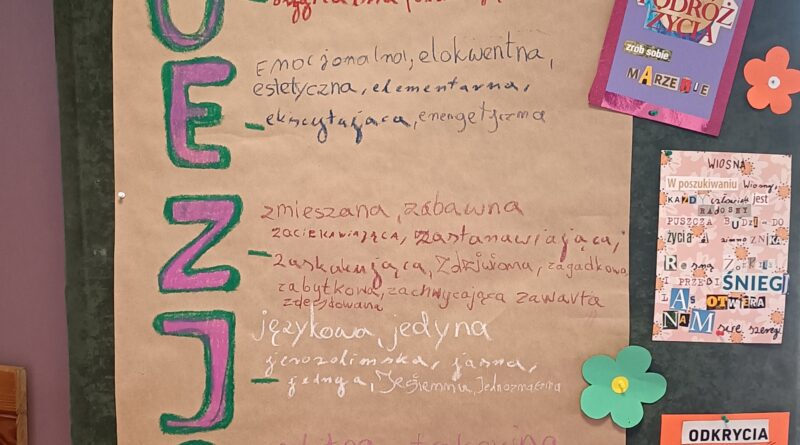 O
E
emocjonalna, elokwentna,
estetyczna, elementarna,
ekscytująca, energetyczna
Z
zmieszana, zabawna
zaciekawiająca, zastanawiająca,
zaskakująca, zdziwiona, zagadkowa,
zabytkowa, zachwycająca zawarta
zdecydowana
J
językowa, jedyna
jerozolimska, jasna,
jednoznaczna
PODRÓŻ
ŻYCIA
zrób sobie
MARZENIE
WIOSNA
W poszukiwaniu Wiosny,
KAŻDY człowiek jest
RADOSNY
PUSZCZA BUDZI DO
życia A zimno ZNIKA
I PRZEBI ŚNIEG
LAS OTWIERA
NAM
ODKRYCIA